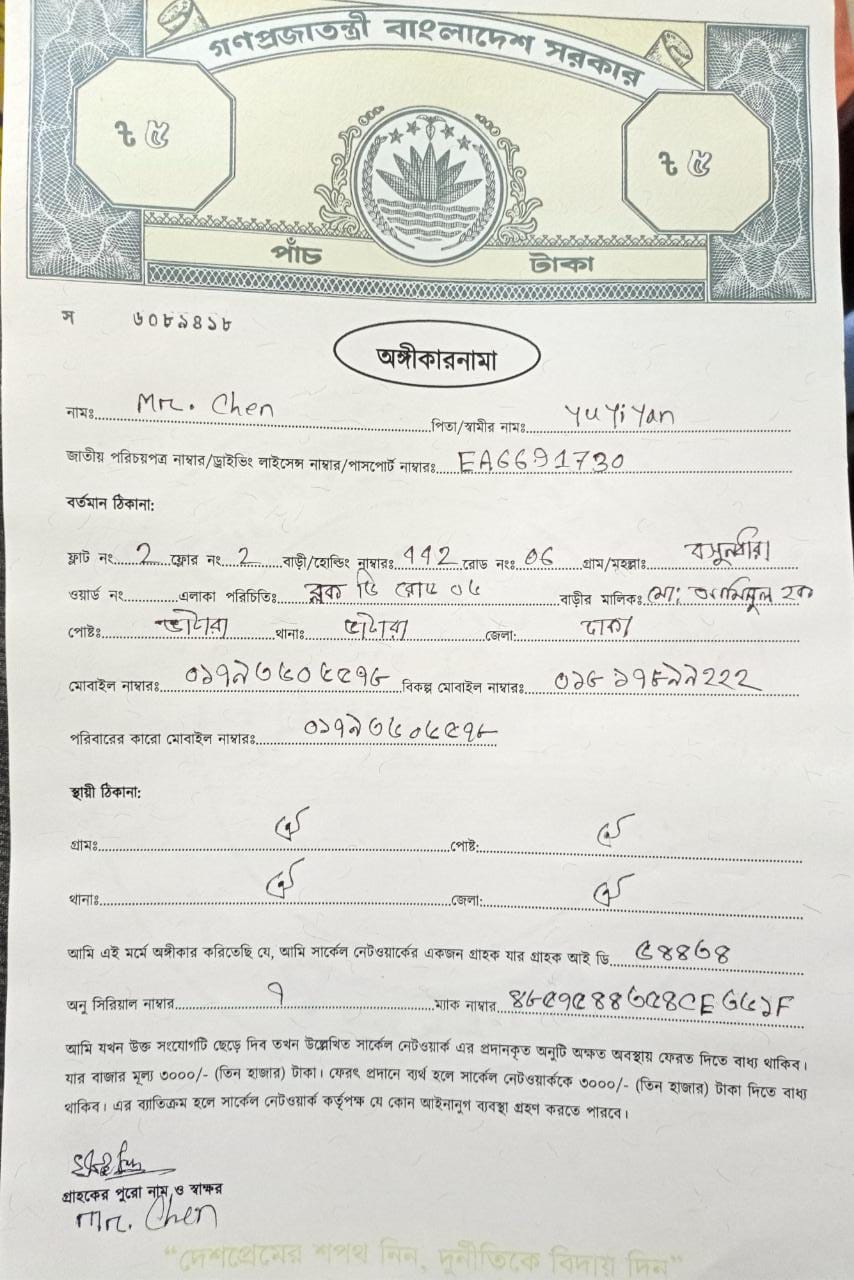 গণপ্রজাতন্ত্রী বাংলাদেশ সরকার
৳ ৫
৳ ৫
পাঁচ টাকা
স ৬০৮৯৪১৮
অঙ্গীকারনামা
নামঃ Mr. Chen পিতা/স্বামীর নামঃ Yu Yi Yan
জাতীয় পরিচয়পত্র নাম্বার/ড্রাইভিং লাইসেন্স নাম্বার/পাসপোর্ট নাম্বারঃ EA6691730
বর্তমান ঠিকানা:
ফ্লাট নং 2 ফ্লোর নং 2 বাড়ী/হোল্ডিং নাম্বারঃ 442 রোড নংঃ 06 গ্রাম/মহল্লাঃ বসুন্ধরা
ওয়ার্ড নং এলাকা পরিচিতিঃ ব্লক ডি রোড ০৬ বাড়ীর মালিকঃ মো: আমিনুল হক
পোষ্টঃ ভাটারা থানাঃ ভাটারা জেলা: ঢাকা
মোবাইল নাম্বারঃ বিকল্প মোবাইল নাম্বারঃ
পরিবারের কারো মোবাইল নাম্বারঃ
স্থায়ী ঠিকানা:
গ্রামঃ পোষ্ট:
থানাঃ জেলা:
আমি এই মর্মে অঙ্গীকার করিতেছি যে, আমি সার্কেল নেটওয়ার্কের একজন গ্রাহক যার গ্রাহক আই ডি ৫৪৪৩৪
অনু সিরিয়াল নাম্বার ম্যাক নাম্বার
আমি যখন উক্ত সংযোগটি ছেড়ে দিব তখন উল্লেখিত সার্কেল নেটওয়ার্ক এর প্রদানকৃত অনুটি অক্ষত অবস্থায় ফেরত দিতে বাধ্য থাকিব।
যার বাজার মূল্য ৩০০০/- (তিন হাজার) টাকা। ফেরৎ প্রদানে ব্যর্থ হলে সার্কেল নেটওয়ার্ককে ৩০০০/- (তিন হাজার) টাকা দিতে বাধ্য
থাকিব। এর ব্যাতিক্রম হলে সার্কেল নেটওয়ার্ক কর্তৃপক্ষ যে কোন আইনানুগ ব্যবস্থা গ্রহণ করতে পারবে।
গ্রাহকের পুরো নাম ও স্বাক্ষর
Mr. Chen
“দেশপ্রেমের শপথ নিন, দুর্নীতিকে বিদায় দিন”